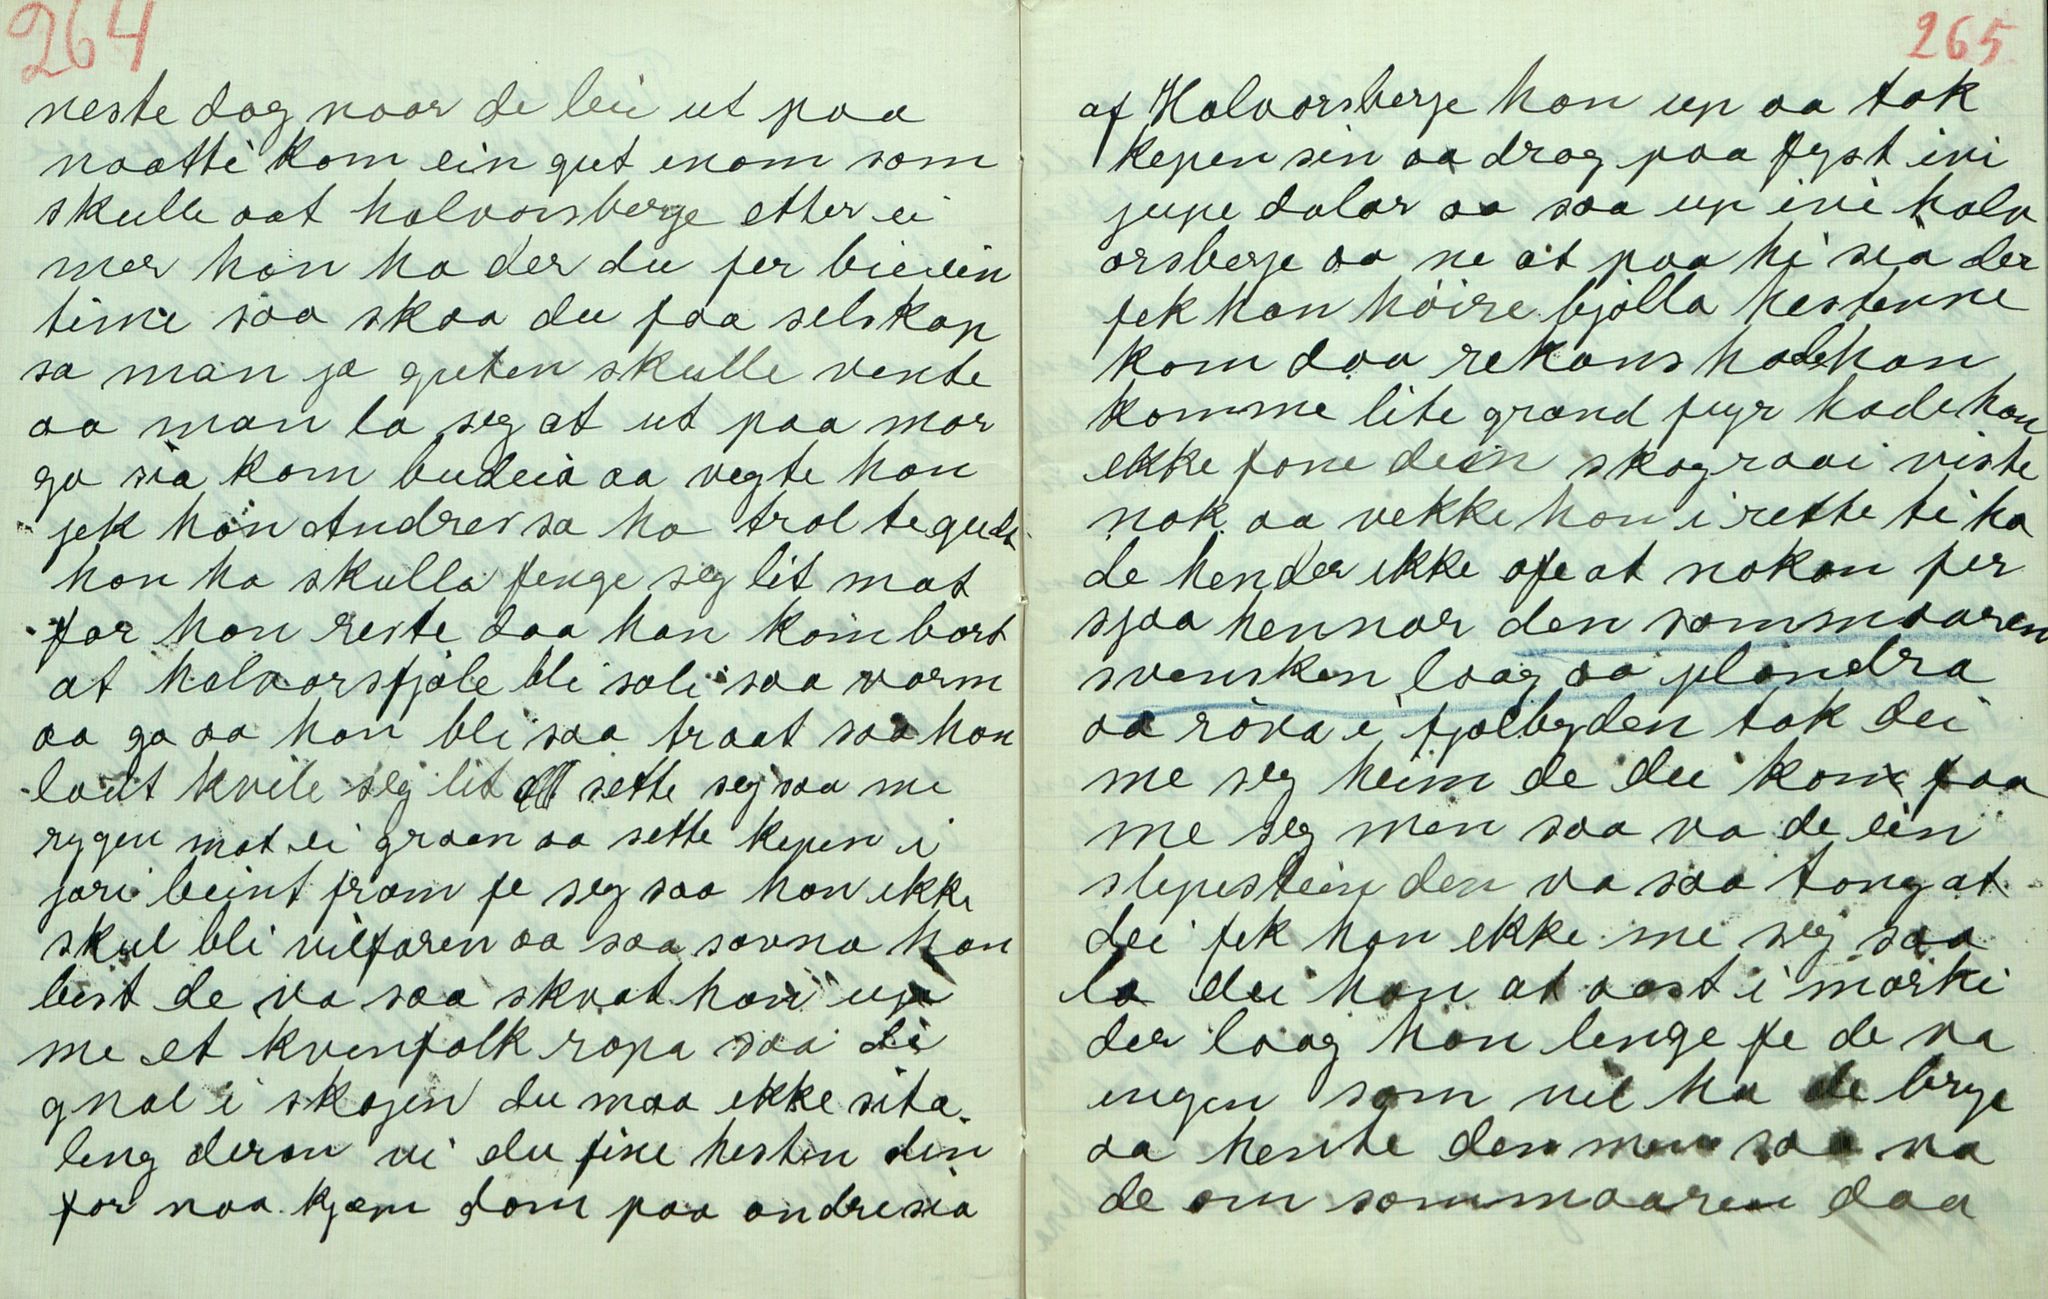 264
neste dag naar de lei ut paa
naatti kom ein gut enom som
skulle aat halvorsberge etter ei
mer han ha der du fer bie ein
time saa skaa du faa selskap
sa man ja guten skulle vente
aa man la seg at ut paa mor
go sia kom budeia aa vegte han
jek han Andres sa ha trol te gude
han ha skulla fenge seg lit mat
før han reste daa han kom bort
at halvorsfjæle ble sole saa varm
aa ga aa han ble saa traat saa han
laut kvile seg lit sette seg saa me
rygen mot ei graen aa sette kepen i
jori beint fram fe seg saa han ikke
skul bli vilfaren aa saa sovna han
best de va saa skvat han up
me et kvenfolk ropa saa de
gnal i skogen du maa ikke sita
leng deran vi du fine hesten din
for naa kjem dom paa andre sia
265
af Halvorsberge han up aa tok
kepen sin aa drog paa fyst ivi
jupe dalar aa saa up ivi halv
orsberge aa ne at paa hi sia der
fek han höire bjølla hestenne
kom daa rekans hade han
komme lite grand fyr hade han
ekke fone dein skograai viste
nok aa vekke han i rette ti ha
de hender ikke ofe at nokon fer
sjaa hennar den sommaaren
svensken laag aa plondra
aa röva i fjolbygden tok dei
me seg heim de dei kom faa
me seg men saa va de ein
slepestein den va saa tong at
dei fek han ekke me seg saa
la dei han at aast i mörki
der laag han lenge fe de va
ingen som vil ha de brye
aa hente den men saa va
de om sommaaren daa